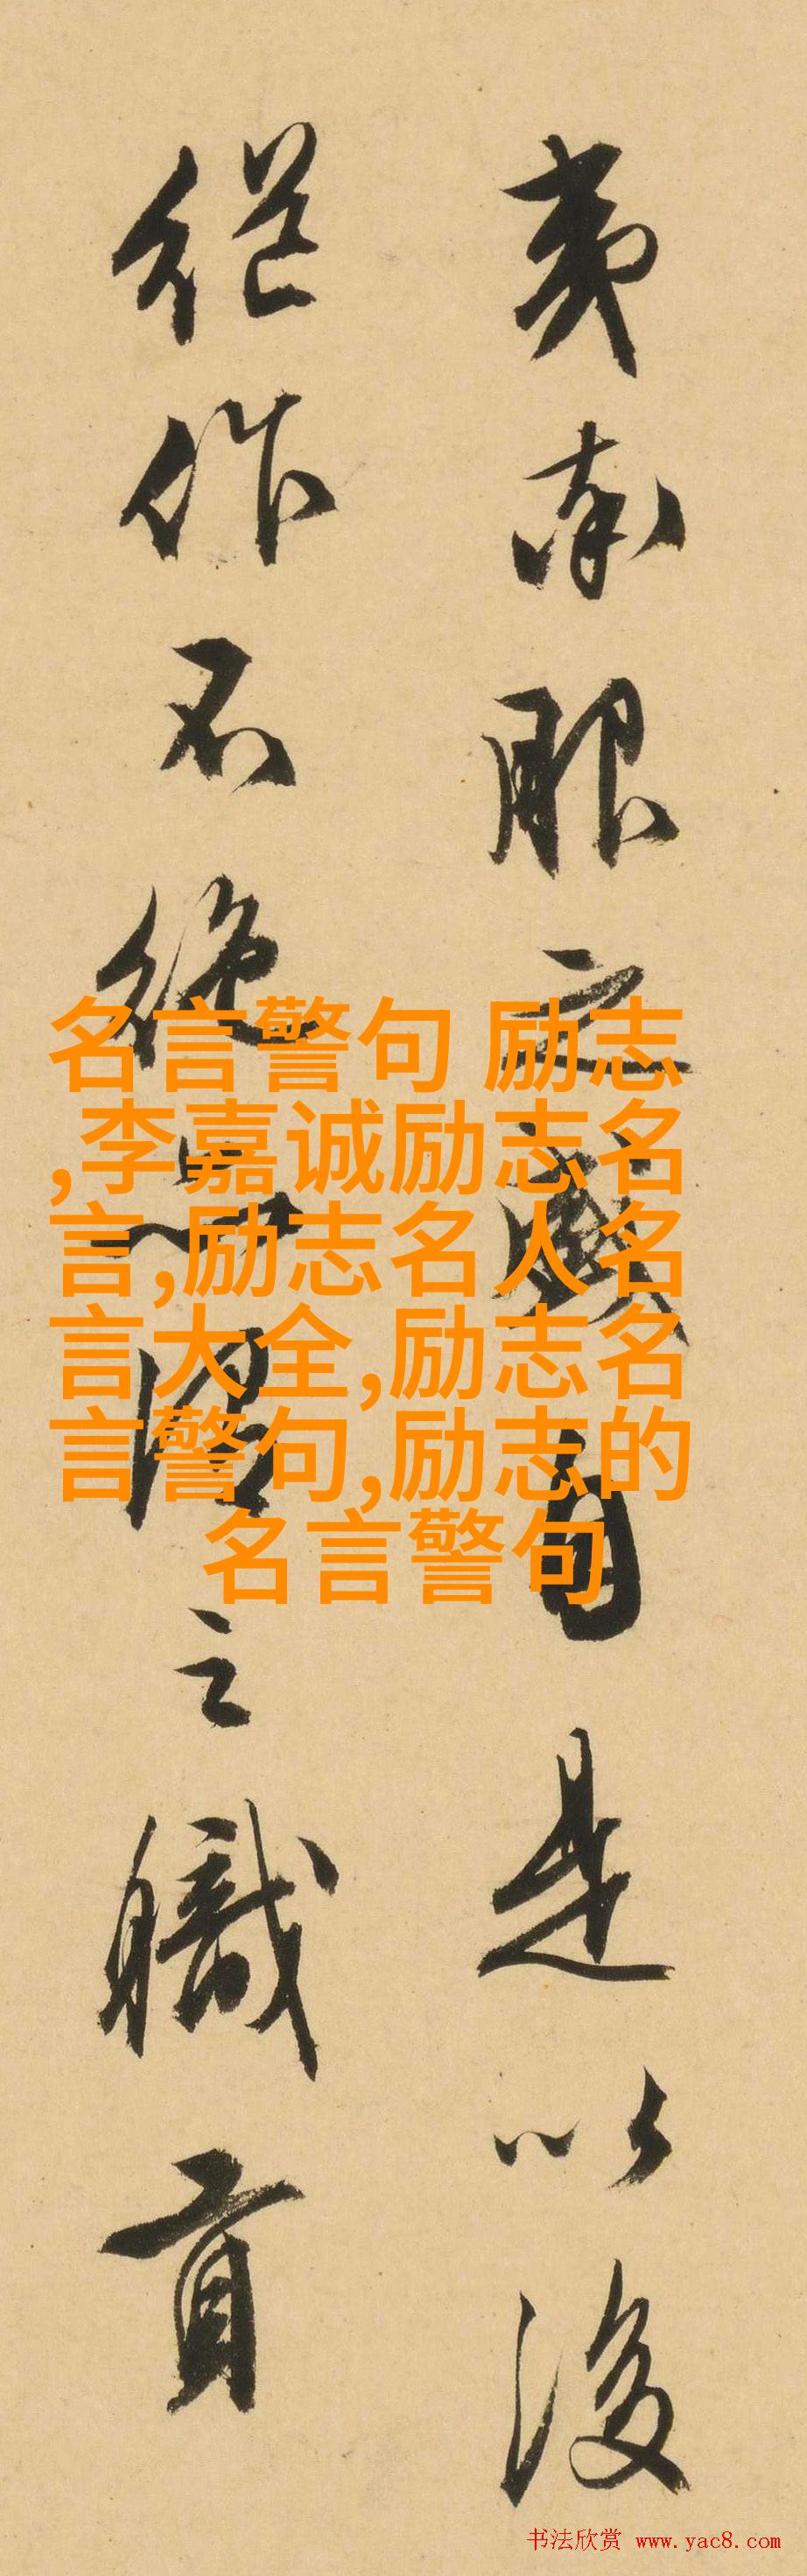 夷南服之自是以後
継作不絶之職貢
名言警句 励志
,李嘉诚励志名
言,励志名人名
言大全,励志名
言警句,励志的
名言警句
书法欣赏 www.yac8.com